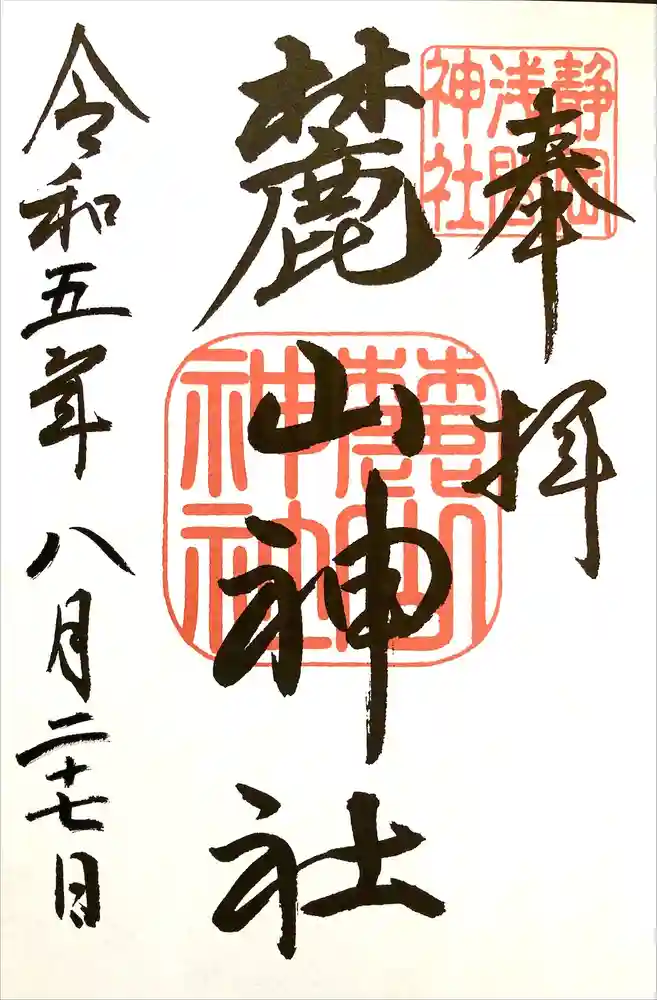 奉拝
静岡
浅間
神社
麓山神社
麓山
神社
令和五年八月二十七日